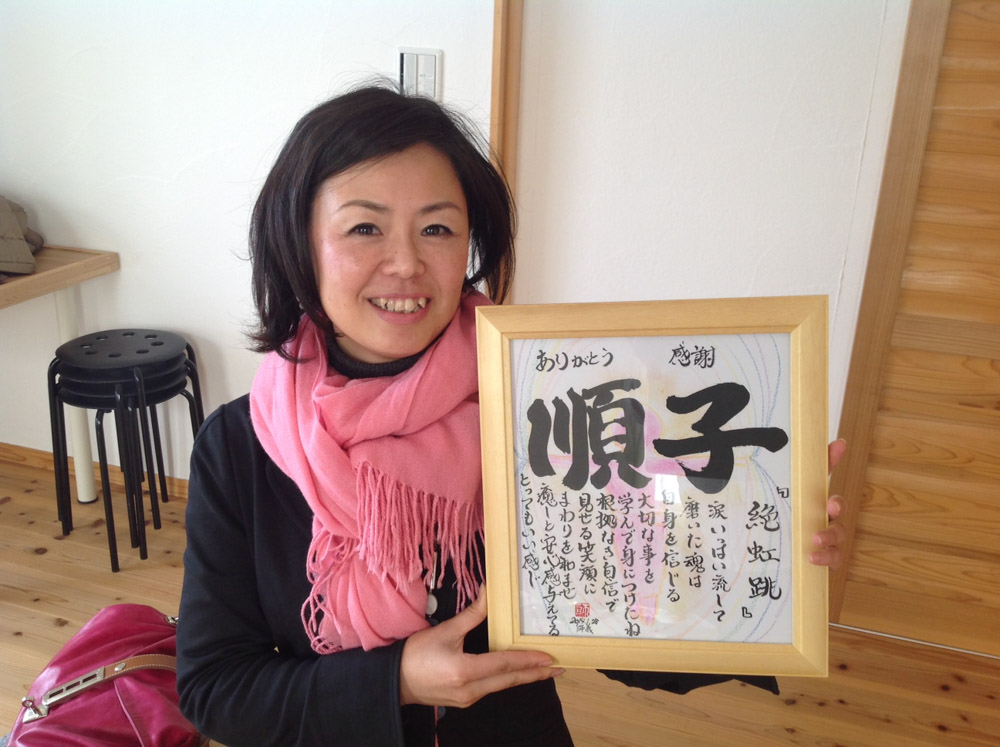 ありがとう 感謝
順子
『絶虹跳』
涙いっぱい流して
磨いた魂は
自身を信じる
大切な事を
学んで身につけたね
根拠なき自信で
見せる笑顔に
まわりを和ませ
癒しと安心感与えてる
とってもいい感じ